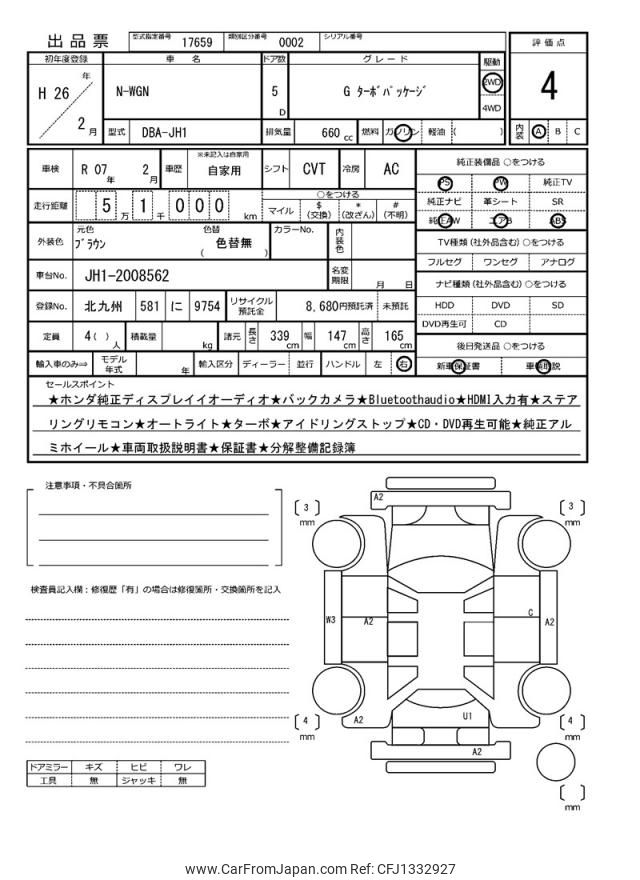 出品票 型式指定番号 17659 類別区分番号 0002 シリアル番号
評価点
初年度登録 車名 ドア数 グレード 駆動
H 26 年 2 月 N-WGN 5 D G ターボパッケージ 2WD 4WD 4
型式 DBA-JH1 排気量 660 cc 燃料 ガソリン 軽油 ( ) 内装 A B C
車検 R 07 年 2 月 車歴 ※未記入は自家用 自家用 シフト CVT 冷房 AC
純正装備品 ○をつける
PS PW 純正TV
純正ナビ 革シート SR
純正AW エアB ABS
走行距離 5 万 1 千 0 0 0 km ○をつける
マイル $ (交換) * (改ざん) # (不明)
外装色 元色 ブラウン 色替 色替無 ( ) カラーNo. 内装色
TV種類 (社外品含む) ○をつける
フルセグ ワンセグ アナログ
車台No. JH1-2008562 名変期限 月 日
ナビ種類 (社外品含む) ○をつける
HDD DVD SD
DVD再生可 CD
登録No. 北九州 581 に 9754 リサイクル預託金 8,680円預託済 未預託
定員 4( ) 人 積載量 kg 諸元 長さ 339 cm 幅 147 cm 高さ 165 cm
後日発送品 ○をつける
新車保証書 車輌取説
輸入車のみ⇒ モデル年式 年 輸入区分 ディーラー 並行 ハンドル 左 右
セールスポイント
★ホンダ純正ディスプレイイオーディオ★バックカメラ★Bluetoothaudio★HDMI入力有★ステア
リングリモコン★オートライト★ターボ★アイドリングストップ★CD・DVD再生可能★純正アル
ミホイール★車両取扱説明書★保証書★分解整備記録簿
注意事項・不具合箇所
検査員記入欄：修復歴「有」の場合は修復箇所・交換箇所を記入
A2
3 mm
3 mm
W3 A2 C A2
4 mm
A2 U1
4 mm
A2
mm
ドアミラー キズ ヒビ ワレ
工具 無 ジャッキ 無
www.CarFromJapan.com Ref: CFJ1332927